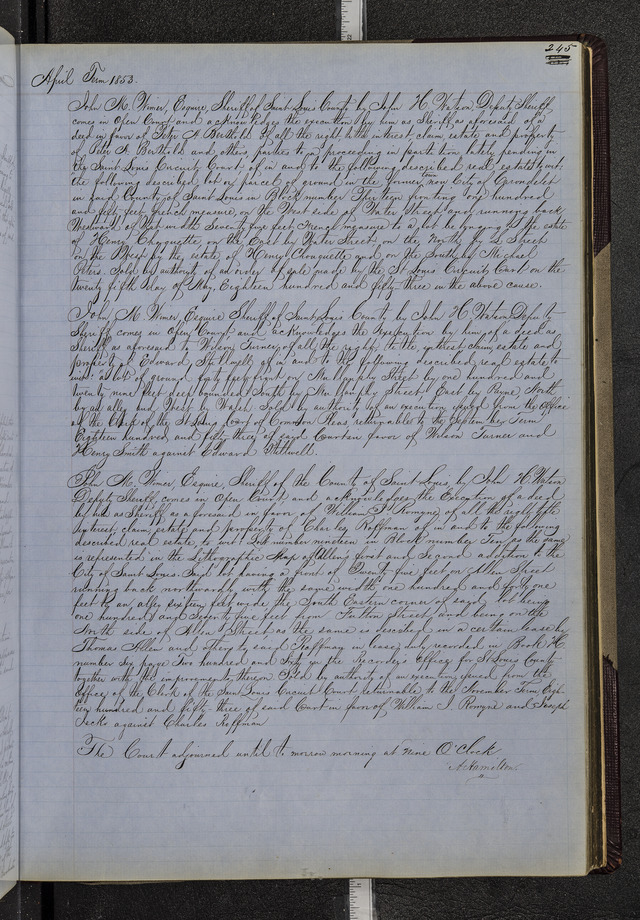 245
April Term 1853.
John M. Wimer, Esquire, Sheriff of Saint Louis County by John H. Watson, Deputy Sheriff,
comes in Open Court and acknowledges the execution by him as Sheriff as aforesaid of a
deed in favor of Peter A. Berthold of all the right title interest claim estate and property
of Peter A. Berthold and others, parties to a proceeding in partition lately pending in
the Saint Louis Circuit Court, of in and to the following described real estate to wit:
the following described lot or parcel of ground in the former town now City of Carondelet
in said County of Saint Louis in Block number Thirteen fronting one hundred
and fifty feet french measure, on the West side of Water Street and running back
Westward of that width Seventy five feet french measure to a lot belonging to the estate
of Henry Chouquette, on the East by Water Street, on the North by Street
on the West by the estate of Henry Chouquette and on the South by Michael
Peters. Sold by authority of an order of sale made by the St Louis Circuit Court on the
twenty fifth day of May, Eighteen hundred and fifty three in the above cause.
John M. Wimer, Esquire Sheriff of Saint Louis County by John H. Watson Deputy
Sheriff comes in Open Court and acknowledges the execution by him of a deed as
Sheriff as aforesaid to Wilson Turner, of all the right, title, interest claim, estate and
property of Edward Stillwell of in and to the following described real estate to
wit: a lot of ground forty feet front on Street by one hundred and
twenty nine feet deep bounded South by Street East by Payne North
by an alley and West by Walsh Sold by authority of an execution issued from the Office
of the Clerk of the St Louis Court of Common Pleas, returnable to the September Term
Eighteen hundred and fifty three of said Court in favor of Wilson Turner and
Henry Smith against Edward Stillwell.
John M. Wimer, Esquire, Sheriff of the County of Saint Louis, by John H. Watson
Deputy Sheriff, comes in Open Court and acknowledges the Execution of a deed
by him as Sheriff as aforesaid in favor of William J. Romyne, of all the right title
interest claim, estate and property of Charles Roffman of in and to the following
described real estate, to wit: Lot number nineteen in Block number Ten, as the same
is represented in the Lithographic Map of Allen's first and Second addition to the
City of Saint Louis. Said lot having a front of Twenty five feet on Allen Street
running back northwardly with the same width one hundred and forty one
feet to an alley sixteen feet wide the South Eastern corner of said lot being
one hundred and Seventy five feet from Fulton Street, and being on the
North side of Allen Street as the same is described in a certain lease by
Thomas Allen and others to said Roffman in lease duly recorded in Book H.
number Six page Two hundred and Sixty in the Recorders Office for St Louis County
together with the improvements thereon Sold by authority of an execution issued from the
Office of the Clerk of the Saint Louis Circuit Court returnable to the November Term Eigh-
teen hundred and fifty three of said Court in favor of William J. Romyne and Joseph
Jecko against Charles Roffman
The Court adjourned until to morrow morning at nine O'Clock
A. Hamilton